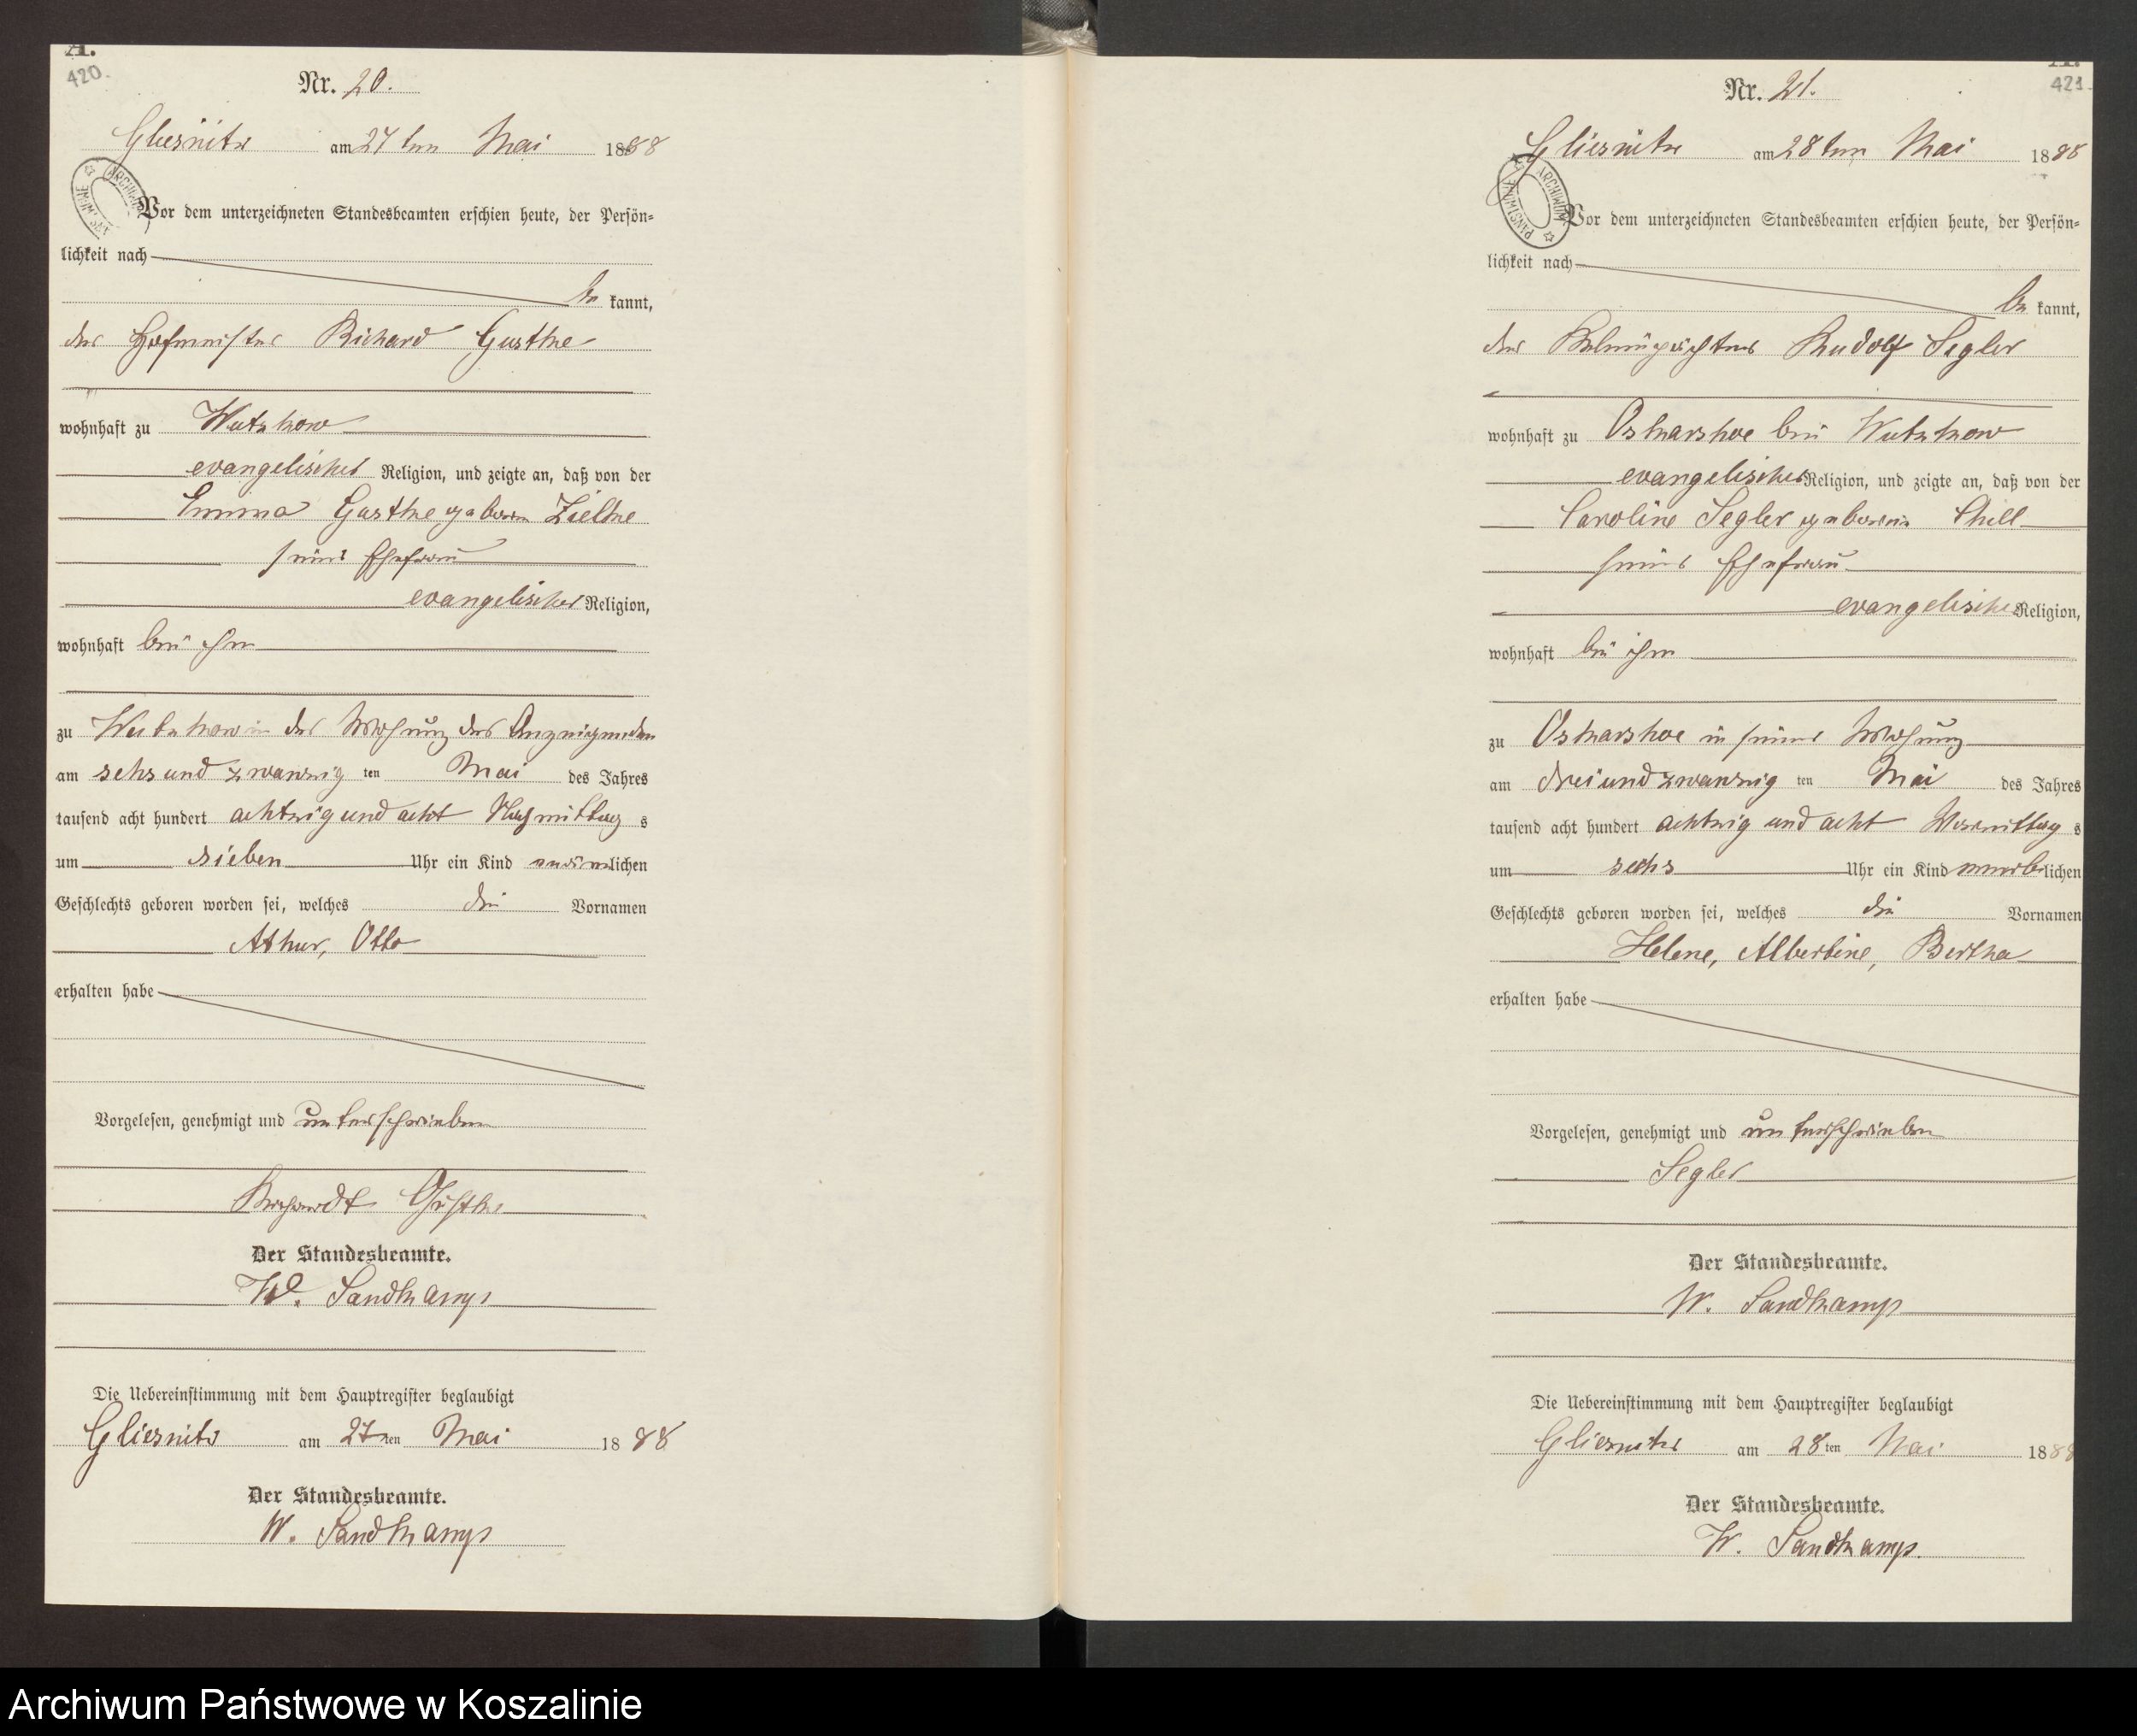 A.
420.
Nr. 20.
Gliesnitz am 27ten Mai 1888
Vor dem unterzeichneten Standesbeamten erschien heute, der Persön-
lichkeit nach
be kannt,
der Hofmeister Richard Gusthe
wohnhaft zu Wutzkow
evangelischer Religion, und zeigte an, daß von der
Emma Gusthe geboren Zielke
seiner Ehefrau
evangelischer Religion,
wohnhaft bei ihm
zu Wutzkow in der Wohnung des Anzeigenden
am sechs und zwanzig ten Mai des Jahres
tausend acht hundert achtzig und acht Nachmittag s
um sieben Uhr ein Kind männlichen
Geschlechts geboren worden sei, welches die Vornamen
Athur, Otto
erhalten habe
Vorgelesen, genehmigt und unterschrieben
Der Standesbeamte.
W. Sandkamp
Die Uebereinstimmung mit dem Hauptregister beglaubigt
Gliesnitz am 27ten Mai 1888
Der Standesbeamte.
W. Sandkamp
421
Nr. 21.
Gliesnitz am 28ten Mai 1888
ARCHIWUM PAŃSTWOWE
Vor dem unterzeichneten Standesbeamten erschien heute, der Persön-
lichkeit nach
be kannt,
der Rudolf Segler
wohnhaft zu Oskarshoe bei Wutzkow
evangelischer Religion, und zeigte an, daß von der
Caroline Segler geborene
seiner Ehefrau
evangelischer Religion,
wohnhaft bei ihm
zu Oskarshoe in seiner Wohnung
am drei und zwanzig ten Mai des Jahres
tausend acht hundert achtzig und acht Vormittag s
um sechs Uhr ein Kind weiblichen
Geschlechts geboren worden sei, welches die Vornamen
Helene, Albertine, Bertha
erhalten habe
Vorgelesen, genehmigt und unterschrieben
Segler
Der Standesbeamte.
W. Sandkamp
Die Uebereinstimmung mit dem Hauptregister beglaubigt
Gliesnitz am 28ten Mai 1888
Der Standesbeamte.
W. Sandkamp.
Archiwum Państwowe w Koszalinie